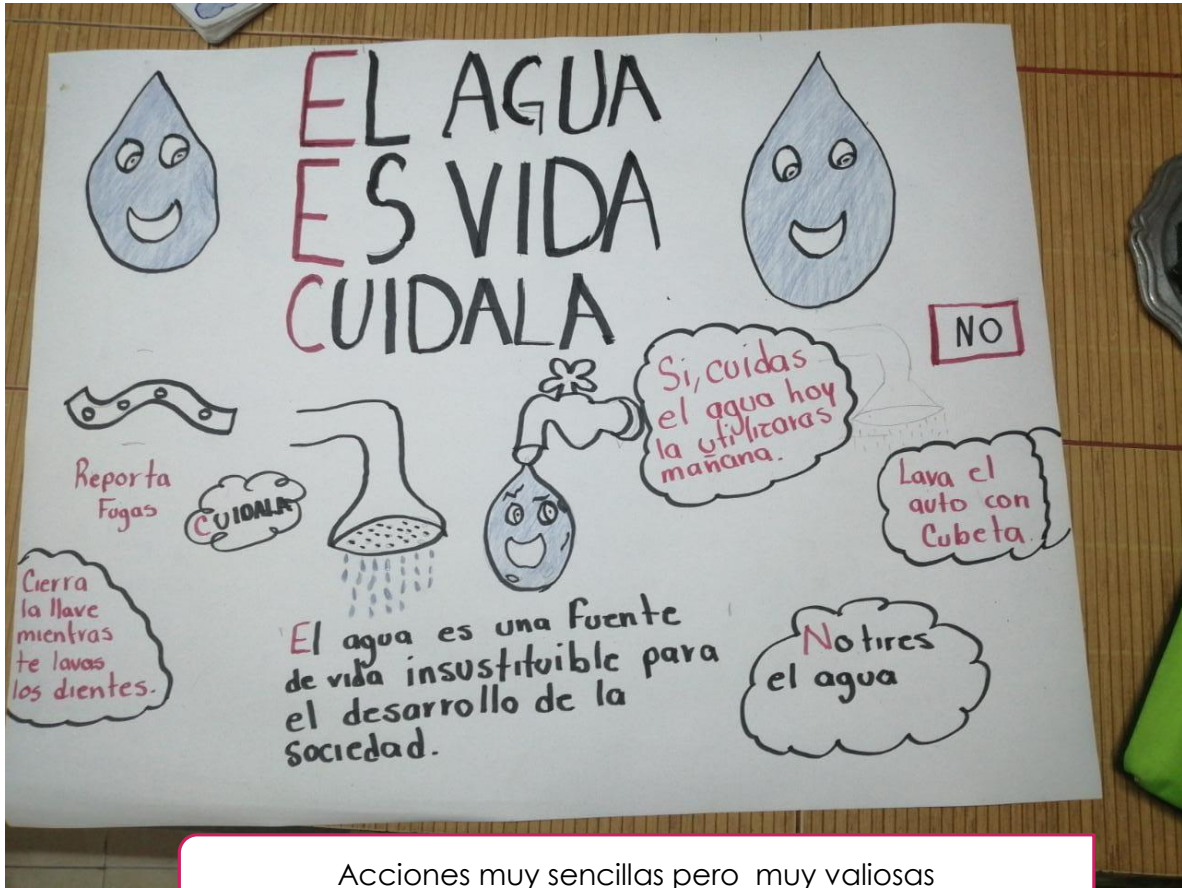 EL AGUA
ES VIDA
CUIDALA
NO
Si, cuidas
el agua hoy
la utilizaras
mañana.
Reporta
Fugas
CUIDALA
Lava el
auto con
Cubeta.
Cierra
la llave
mientras
te lavas
los dientes.
El agua es una Fuente
de vida insustituible para
el desarrollo de la
sociedad.
No tires
el agua
Acciones muy sencillas pero muy valiosas